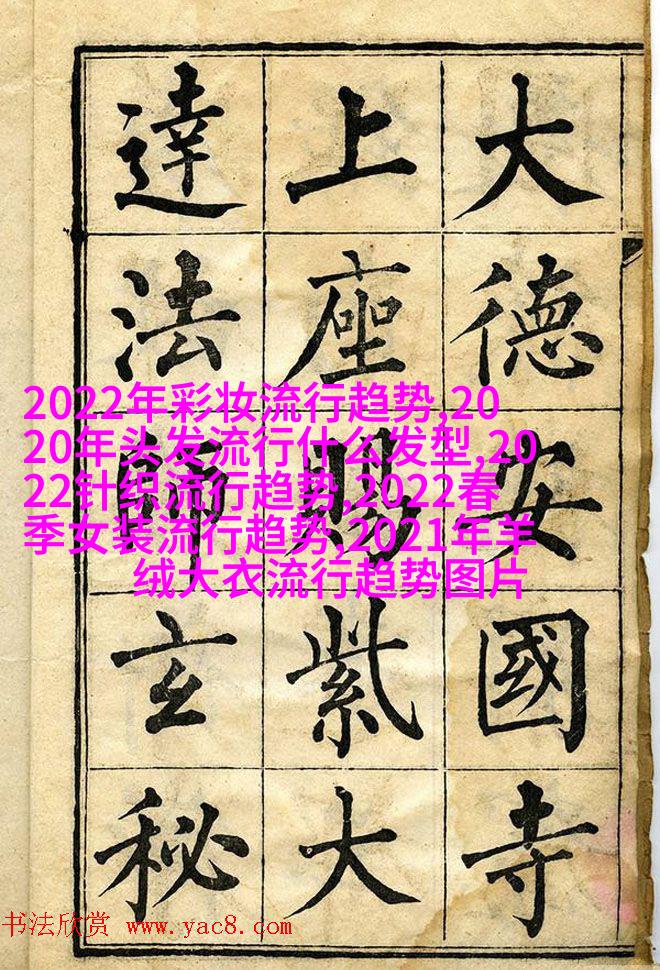 大德安國寺
上座賜紫大
達法師玄秘
2022年彩妆流行趋势,20
20年头发流行什么发型,20
22针织流行趋势,2022春
季女装流行趋势,2021年羊
绒大衣流行趋势图片
书法欣赏 www.yac8.com